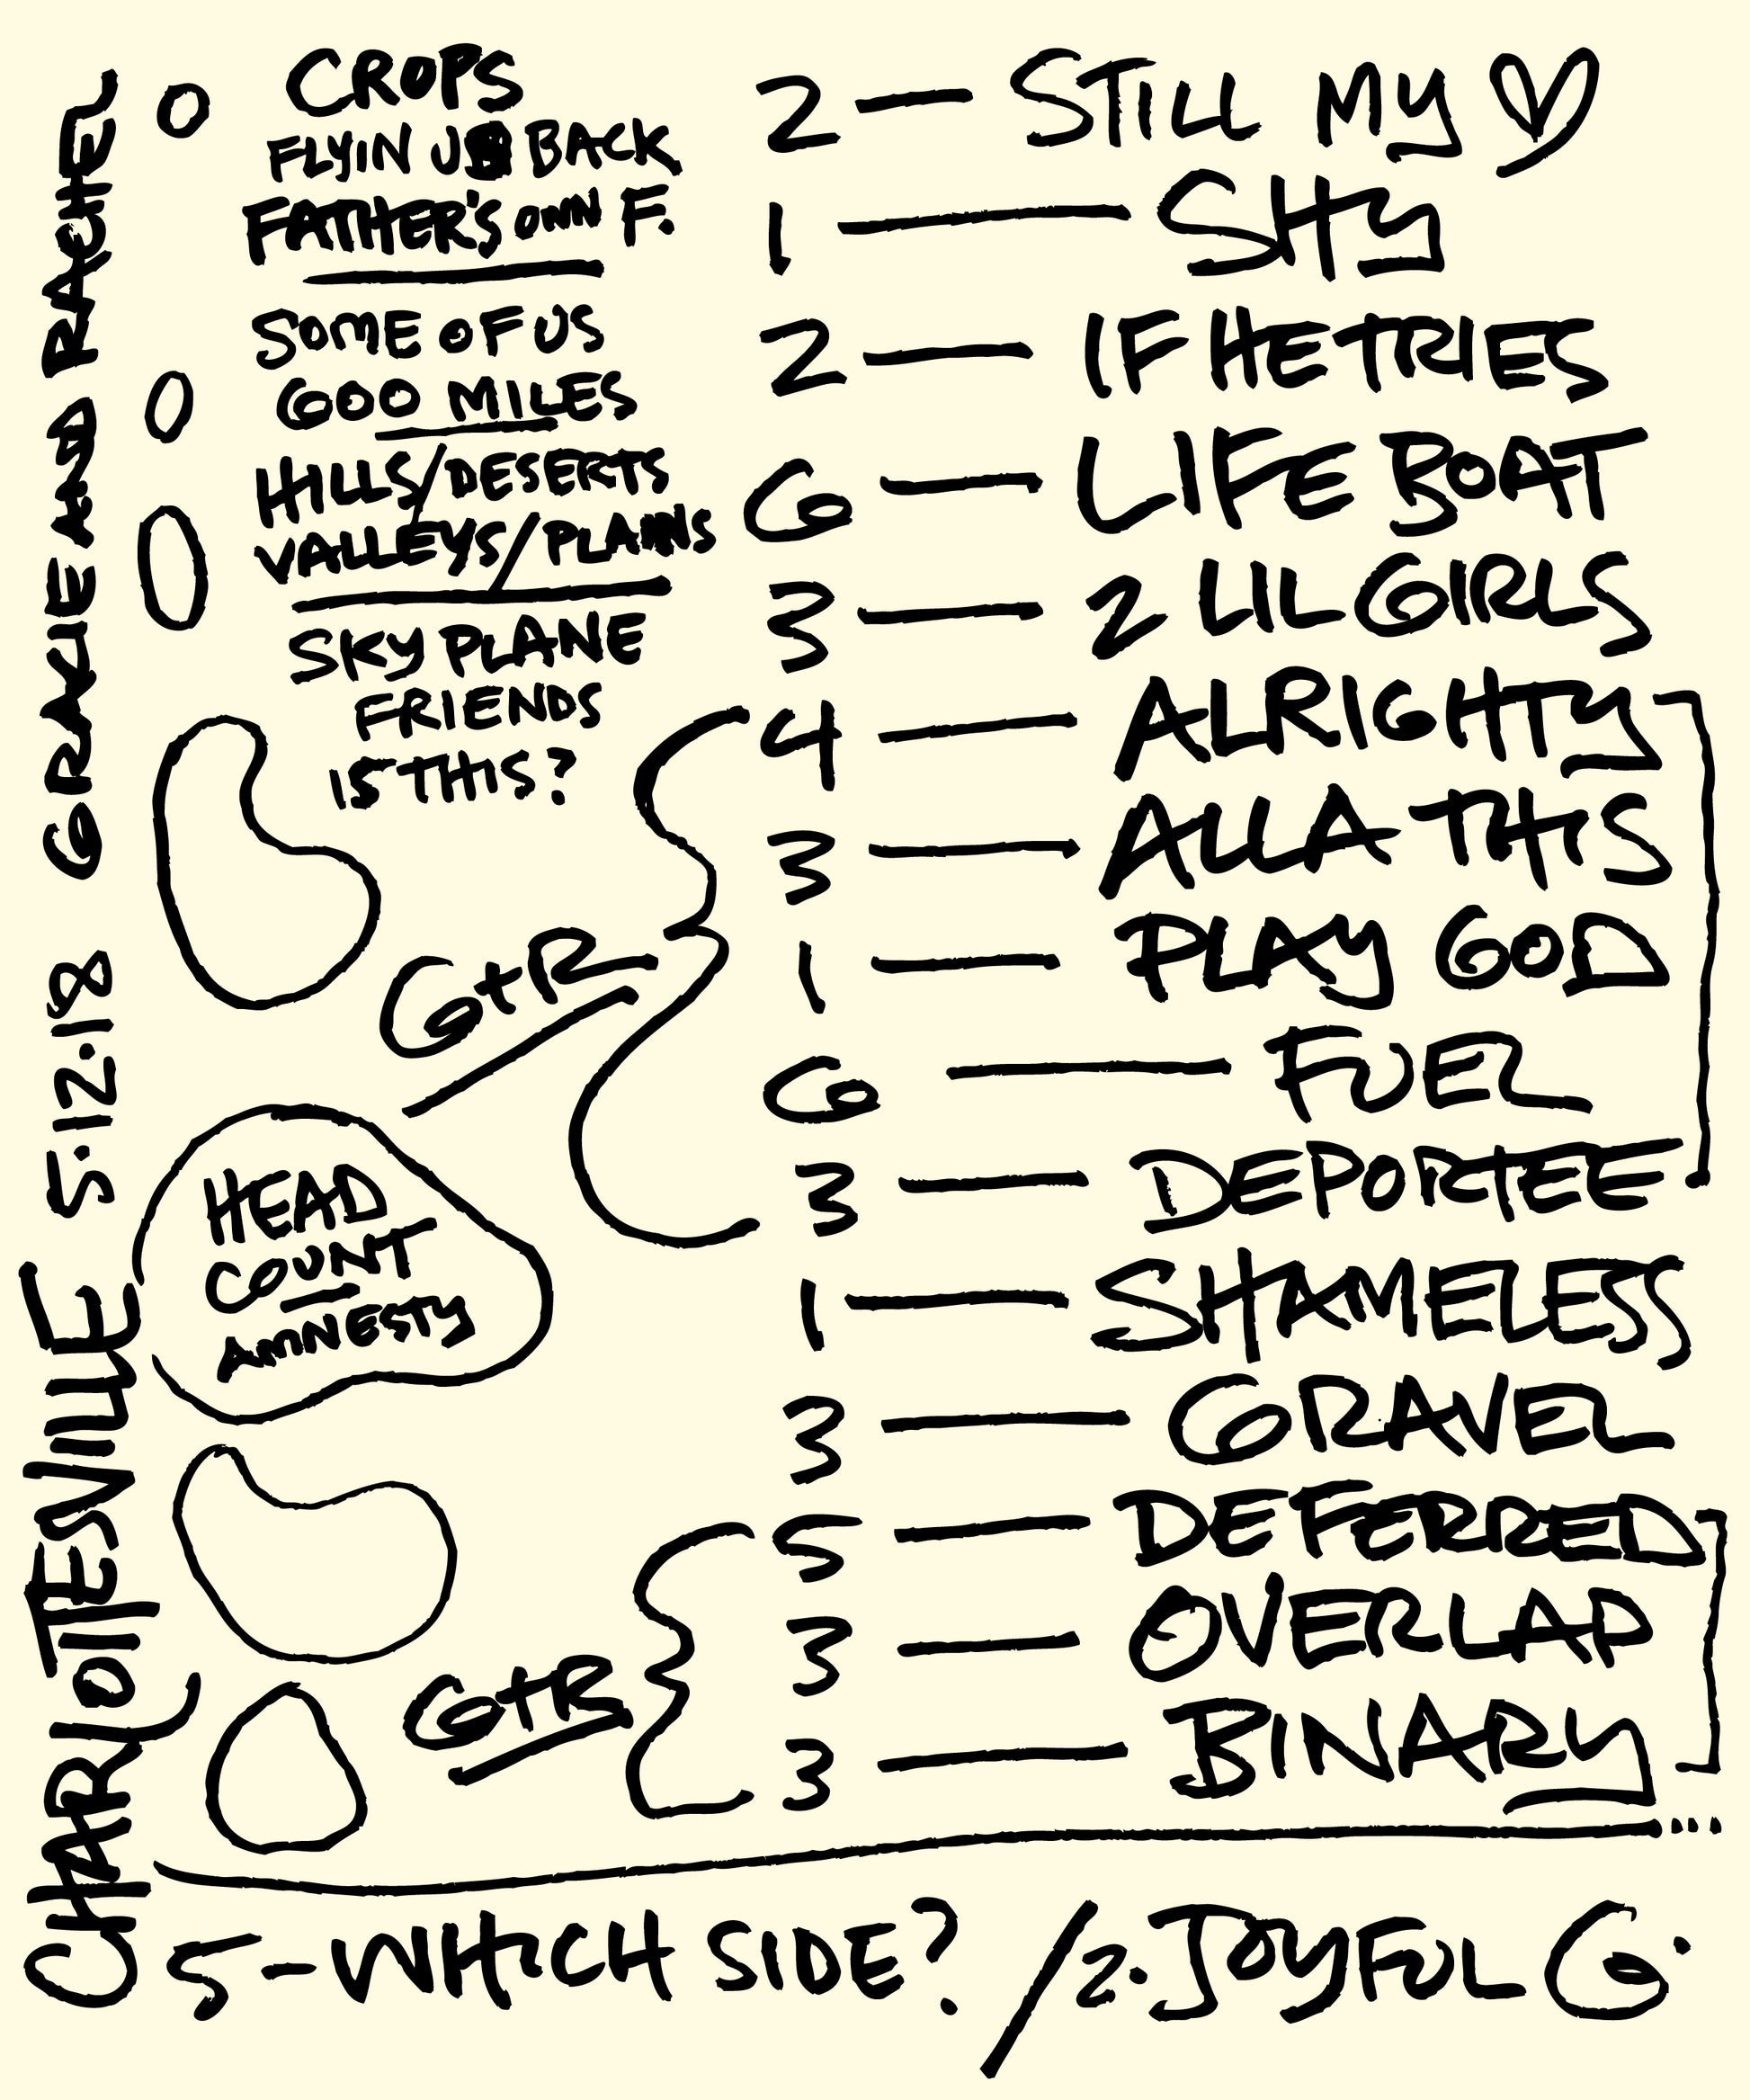 CHARLOTTESVILLE 5.12.18 GRACIE AND RACHEL
CROPS
FLYIN US BACK
FATHER'S OWN F.
SOME OF US
600 MILES
HILLS/DESERTS
VALLEYS/PLAINS
SKY PLANE
FRIENDS
IS THIS?
G+R
HEAD
COUNT
AMNESTY
G+R
2 — STILL MY ♡
1 — SHY
2 — IF HE TRIES
6 — LIFE BOAT
3 — 2 LIL GIRLS
4 — ALRIGHTY
3 — ALLA THIS
1 — PLAY GOD
6 — FUEL
3 — DEPORTEE
1 — SHAMELESS
3 — GRAVEL
5 — DEFERRED
3 — OVERLAP
3 — BINARY
5 - WHICH SIDE? / 2. JOYFUL G.